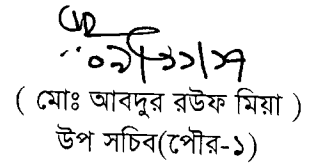 ( মোঃ আবদুর রউফ মিয়া )
উপ সচিব(পৌর-১)